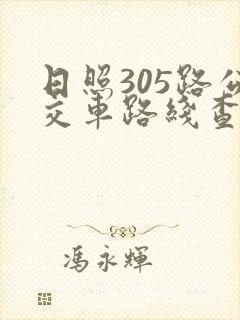 日照305路公
交車路綫查
馮永輝